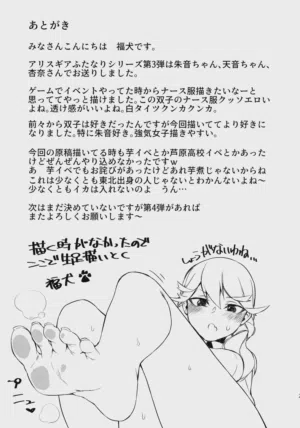 あとがき
みなさんこんにちは　福犬です。
アリスギアふたなりシリーズ第3弾は朱音ちゃん、天音ちゃん、
杏奈さんでお送りしました。
ゲームでイベントやってた時からナース服描きたいなーと
思っててやっと描けました。この双子のナース服クッソエロい
よね。透け感がいいよね。白タイツクンカクンカ。
前々から双子は好きだったんですが今回描いててより好きに
なりました。特に朱音好き。強気女子描きやすい。
今回の原稿描いてる時も芋イベとか芦原高校イベとかあった
けどぜんぜんやり込めなかったですｗ
あ　芋イベでもお詫びがあったけどあれ芋煮じゃないからね
これは少なくとも東北出身の人じゃないとわかんないよね〜
少なくともイカは入れないのよ　うん…
次はまだ決めていないですが第4弾があれば
またよろしくお願いします〜
描く時がなかったので
ここで生足描いとく
福犬
しょうがないわね…
プ
ニュ